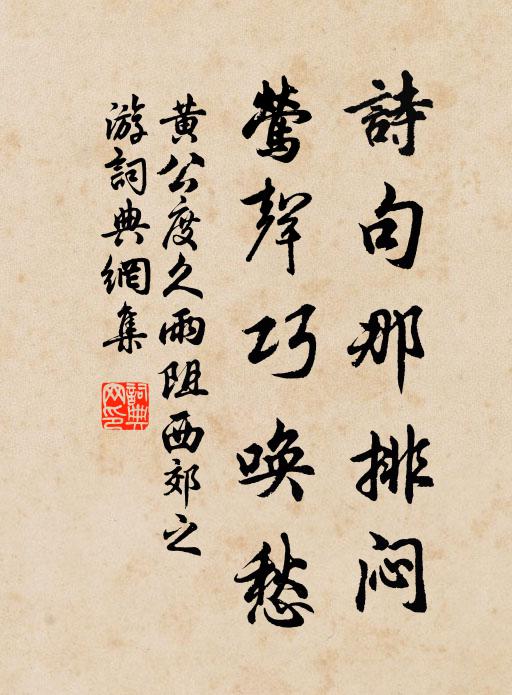 詩句那排闷
鶯聲巧唤愁
黄公度久雨阻西郊之
游詞典網集
詞典
网印